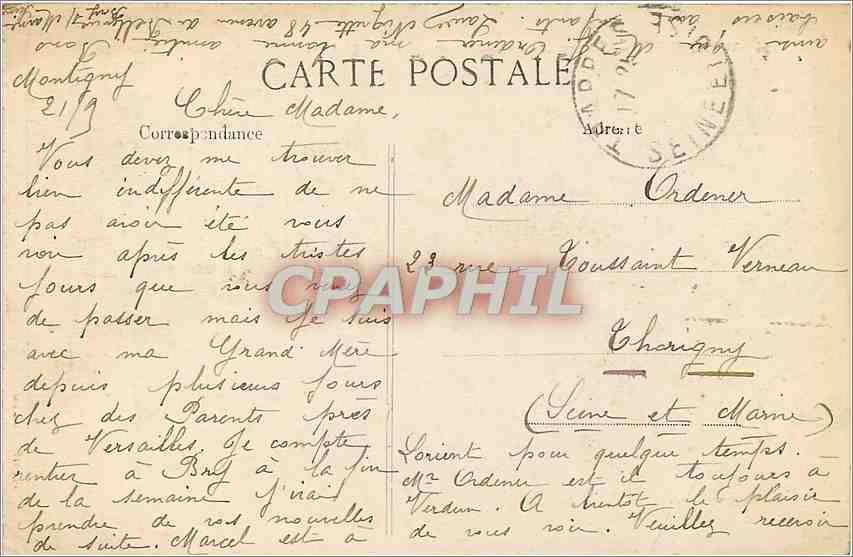 CARTE POSTALE
Correspondance
Adresse
Montigny
21/9
Chère Madame,
Vous devez me trouver
bien indifférente de ne
pas avoir été vous
voir après les tristes
jours que vous venez
de passer mais je suis
avec ma Grand Mère
depuis plusieurs jours
chez des Parents près
de Versailles. Je compte
rentrer à Bry à la fin
de la semaine j'irai
prendre de vos nouvelles
de suite. Marcel est à
Lorient pour quelque temps.
Mr Ordener est il toujours à
Verdun. A bientôt le plaisir
de vous voir. Veuillez recevoir
ma bonne amitié
48 avenue de
Madame Ordener
23 rue Toussaint Verneau
Thorigny
(Seine et Marne)
SEINE ET OISE
CPAPHIL